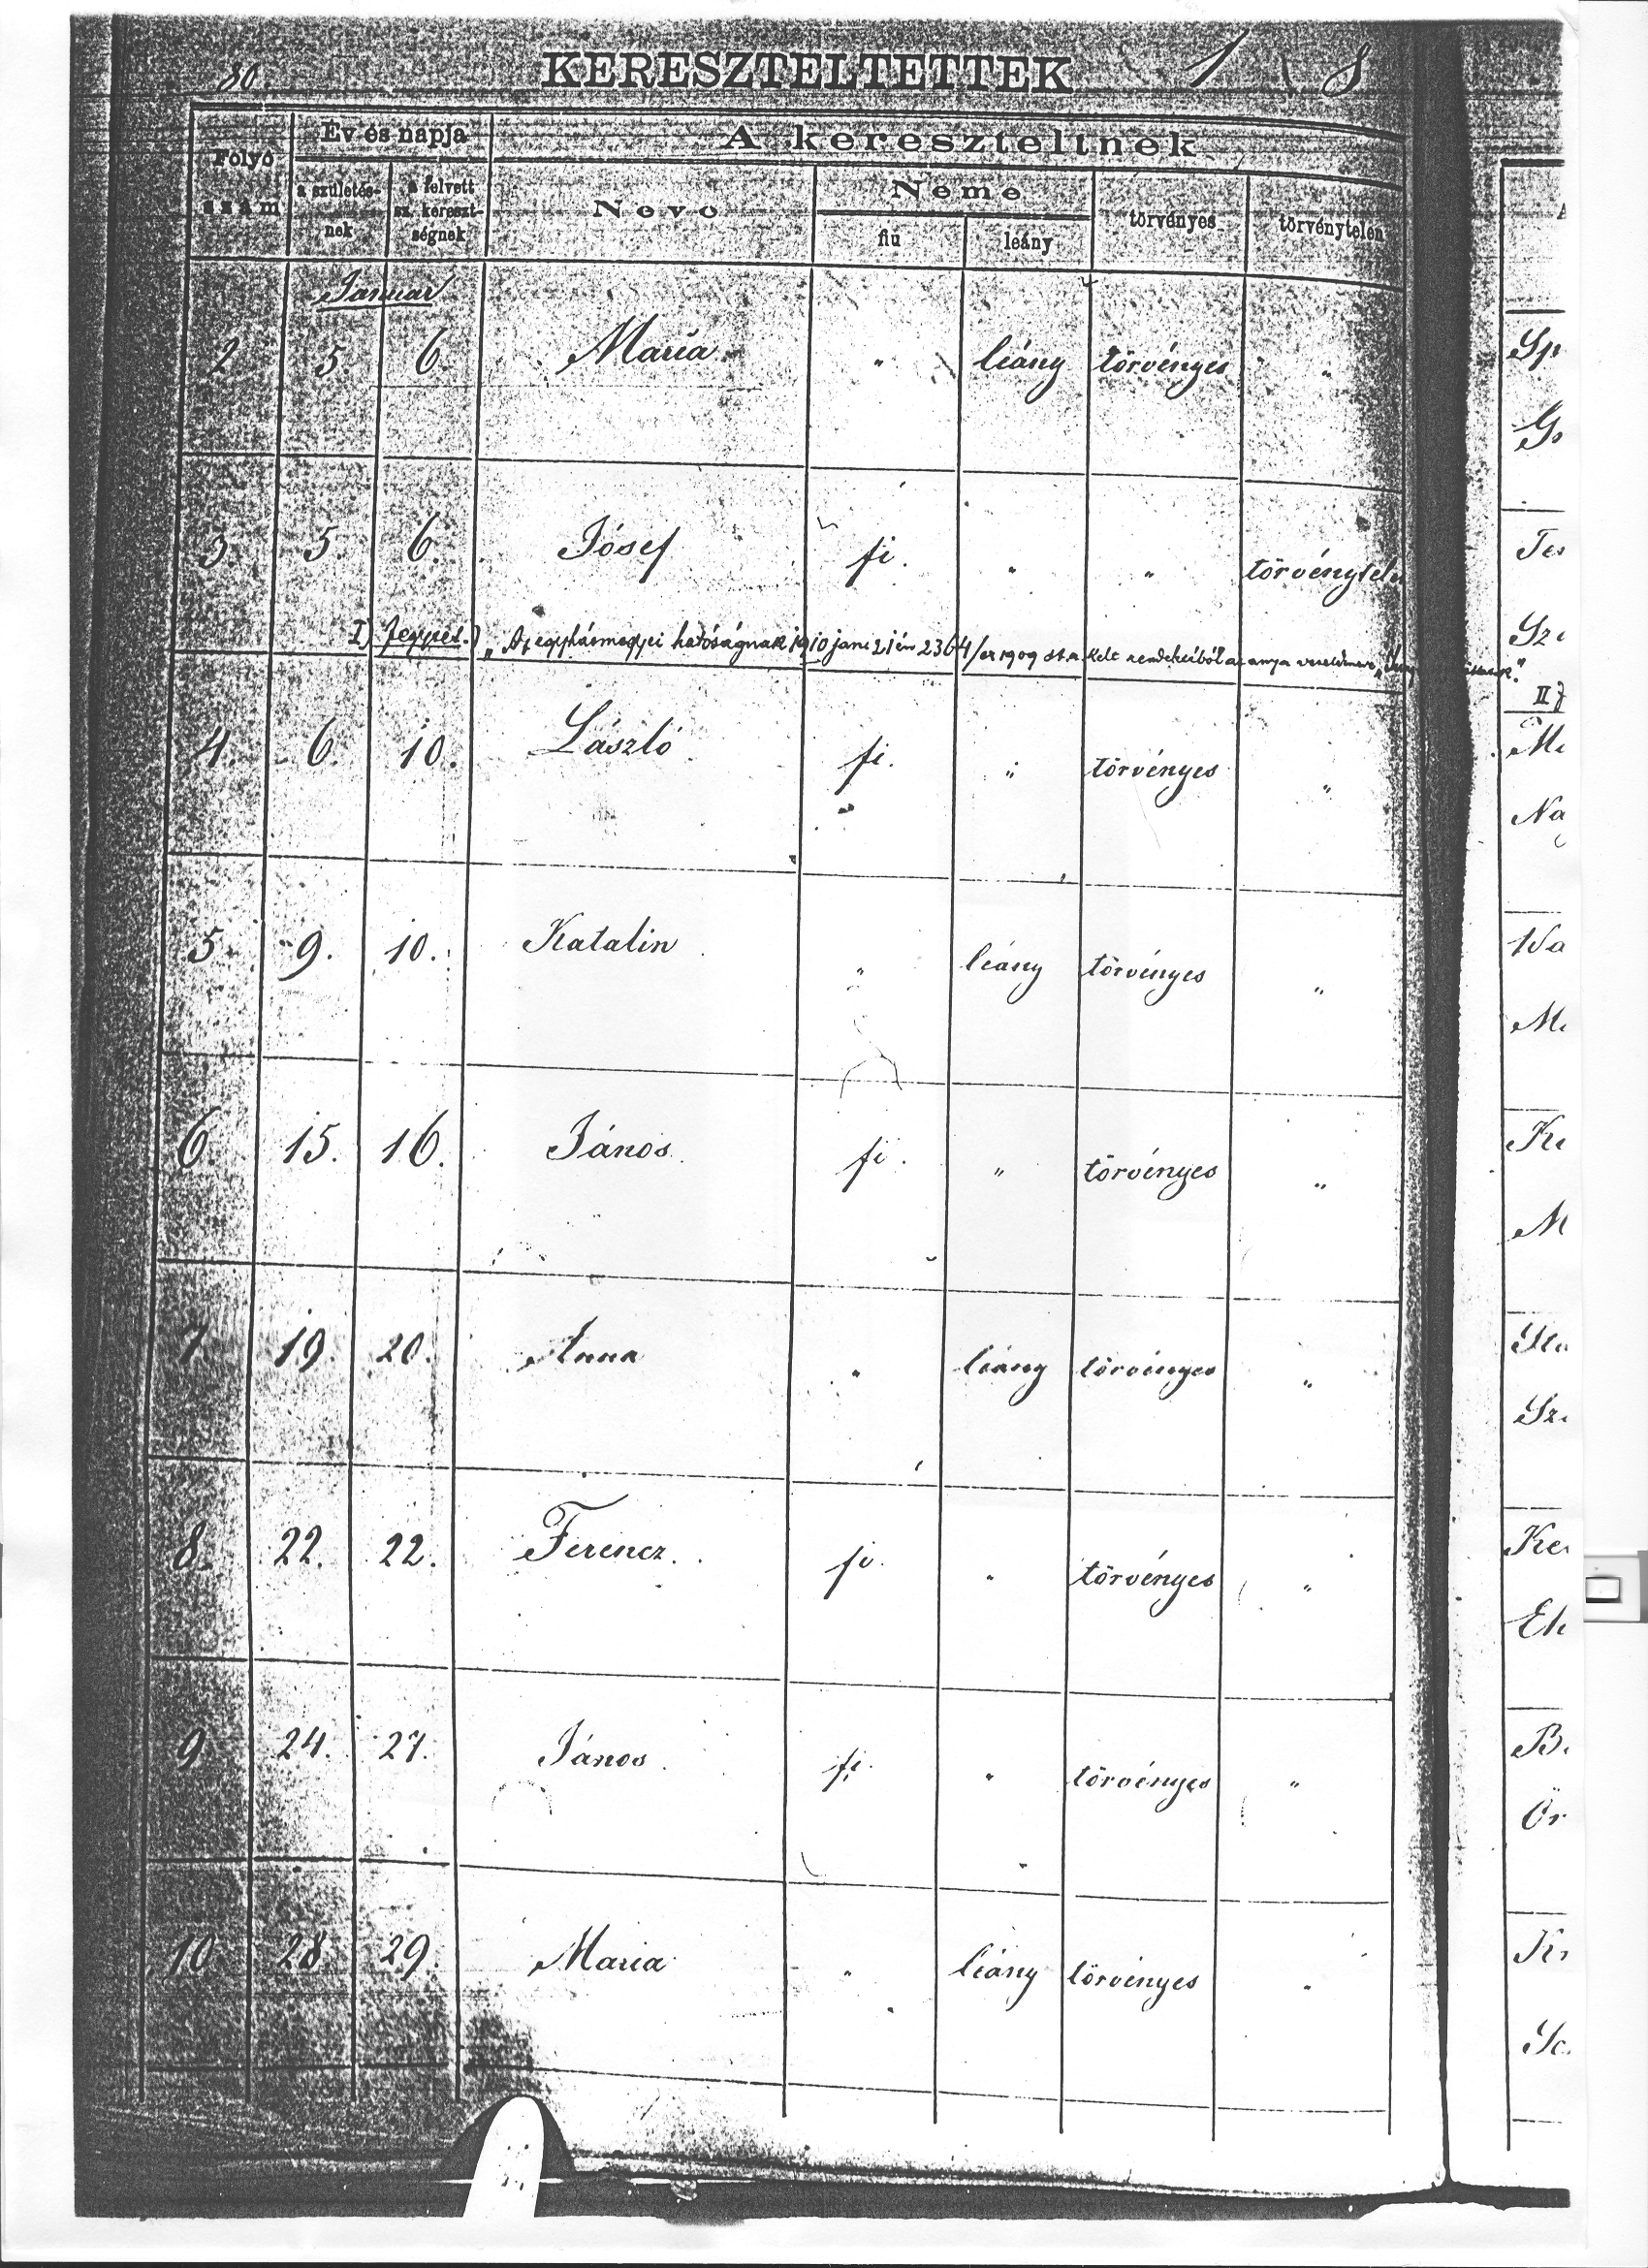 80.
KERESZTELTETTEK
1 8
Folyó szám
Év és napja
a születés-nek
a felvett sz. kereszt-ségnek
A kereszteltnek
Neve
Neme
fiu
leány
törvényes
törvénytelen
Januar
2 5. 6. Maria " leány törvényes "
Sp
3. 5. 6. Jósef fi. " " törvénytelen
I) Jegyzés.) „Az egyházmegyei hatóságnak 1910 jan. 21én 2364/ex 1909 sz. a. kelt rendeletéből az anya
Sz
II)
4. 6. 10. László fi. " törvényes "
Na
5. 9. 10. Katalin " leány törvényes "
Wa
6. 15. 16. János fi. " törvényes "
7 19. 20. Anna " leány törvényes "
Sz
8. 22. 22. Ferencz. fi. " törvényes "
Ke
9 24. 27. János fi. " törvényes "
B
Ör
10 28 29. Maria " leány törvényes "